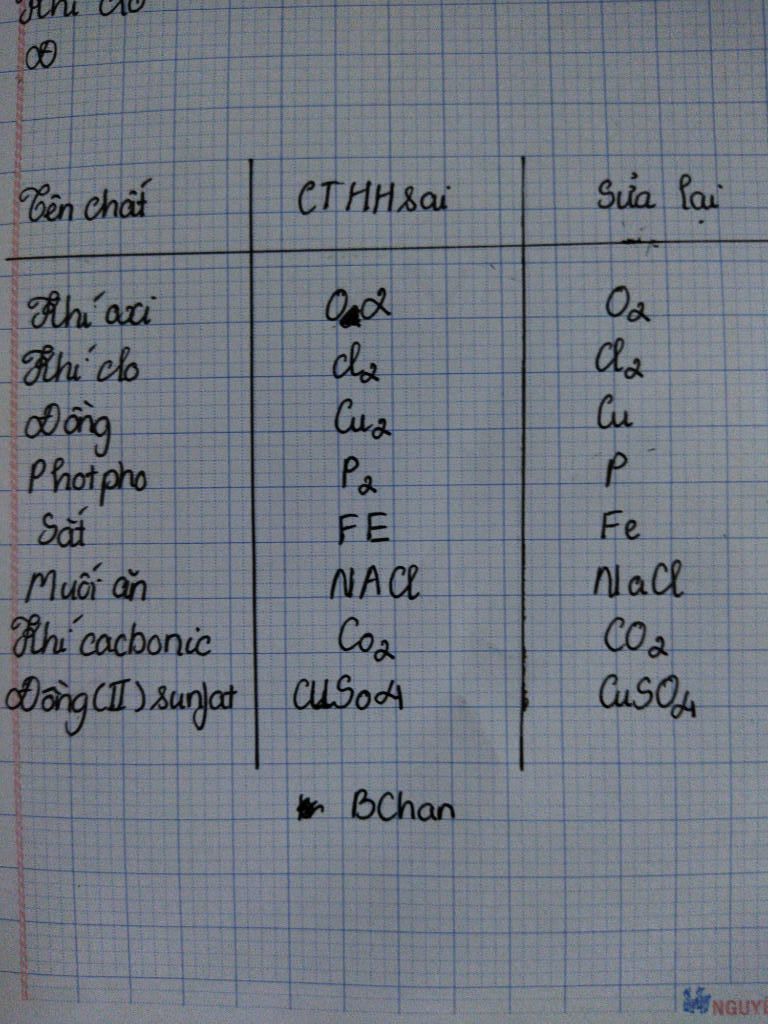 Khí clo
Đ
Tên chất CTHH sai Sửa lại
Khí oxi O2 O₂
Khí clo cl₂ Cl₂
Đồng Cu₂ Cu
Photpho P₂ P
Sắt FE Fe
Muối ăn NACl NaCl
Khí cacbonic Co₂ CO₂
Đồng (II) sunfat CUSo4 CuSO₄
BChan
NGUYÊ